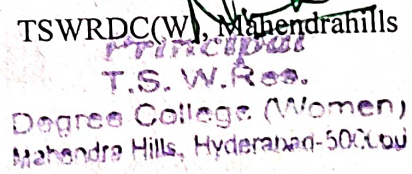 TSWRDC(W), Mahendrahills
Principal
T.S. W.Res.
Degree College (Women)
Mahendra Hills, Hyderabad-500